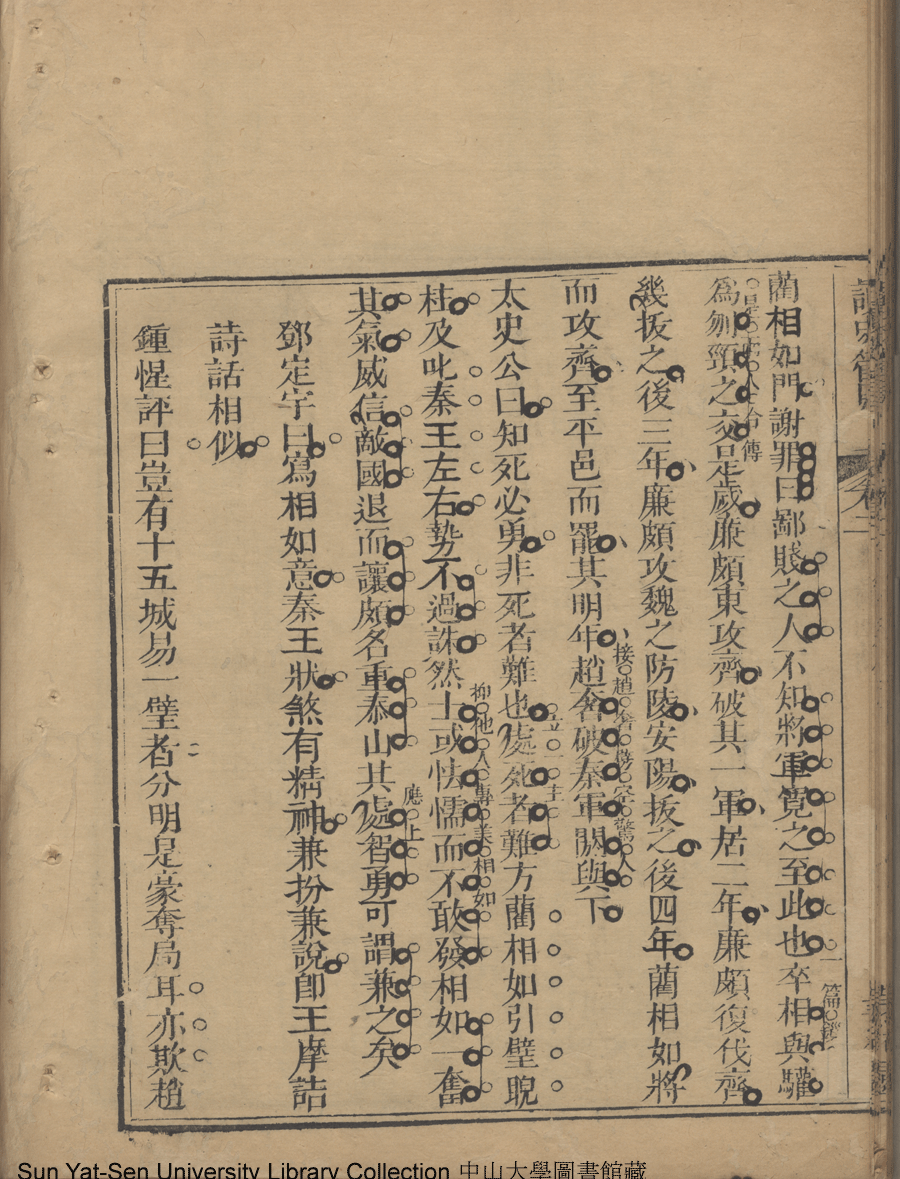 藺相如門謝罪曰鄙賤之人不知將軍寬之至此也卒相與驩
為刎頸之交是歲廉頗東攻齊破其一軍居二年廉頗復伐齊
幾拔之後三年廉頗攻魏之防陵安陽拔之後四年藺相如將
而攻齊至平邑而罷其明年趙奢破秦軍閼與下
接趙奢傍客驚人
太史公曰知死必勇非死者難也處死者難方藺相如引璧睨
立一主
柱及叱秦王左右勢不過誅然士或怯懦而不敢發相如一奮
抑他人專美相如
其氣威信敵國退而讓頗名重泰山其處智勇可謂兼之矣
應上
鄧定宇曰寫相如意秦王狀煞有精神兼扮兼說即王摩詰
詩話相似
鍾惺評曰豈有十五城易一璧者分明是豪奪局耳亦欺趙
Sun Yat-Sen University Library Collection 中山大學圖書館藏